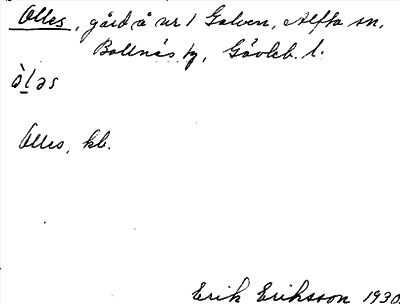 Olles, gård å nr 1 Galven, Alfta sn,
Bollnäs tg, Gävleb. l.
ò̱ləs
Olles, kb.
Erik Eriksson 1930